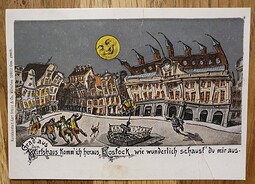 Gruß aus
Wirtshaus komm' ich heraus, Rostock, wie wunderlich schaust du mir aus.